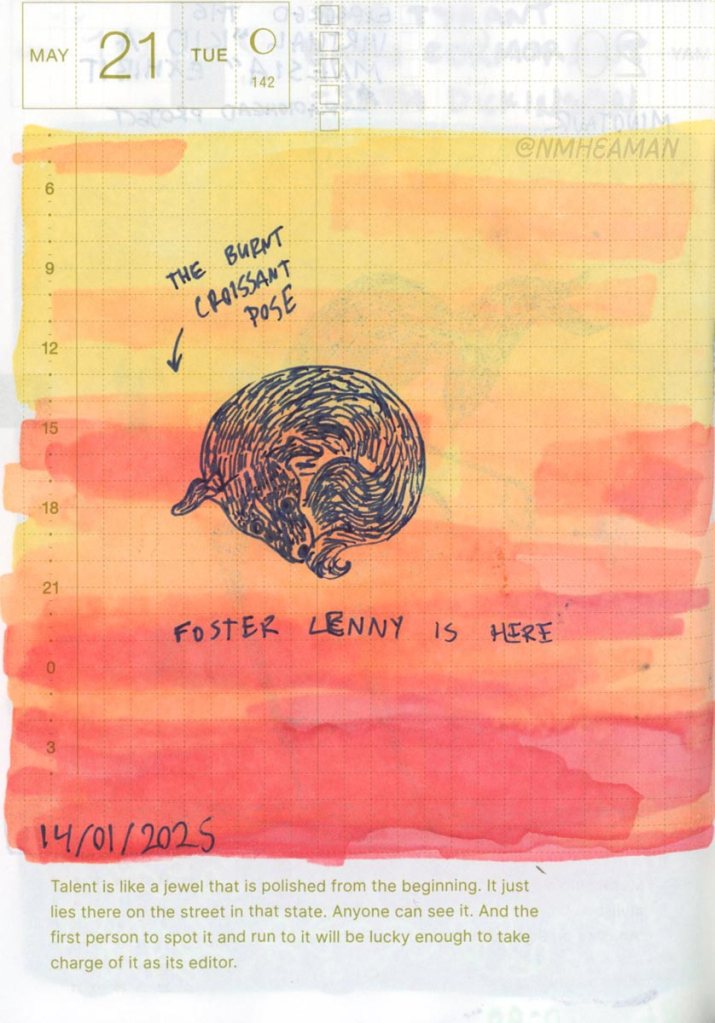 MAY 21 TUE
142
@NMHEAMAN
6
9
THE BURNT
CROISSANT
POSE
12
15
18
21
FOSTER LENNY IS HERE
0
3
14/01/2025
Talent is like a jewel that is polished from the beginning. It just
lies there on the street in that state. Anyone can see it. And the
first person to spot it and run to it will be lucky enough to take
charge of it as its editor.